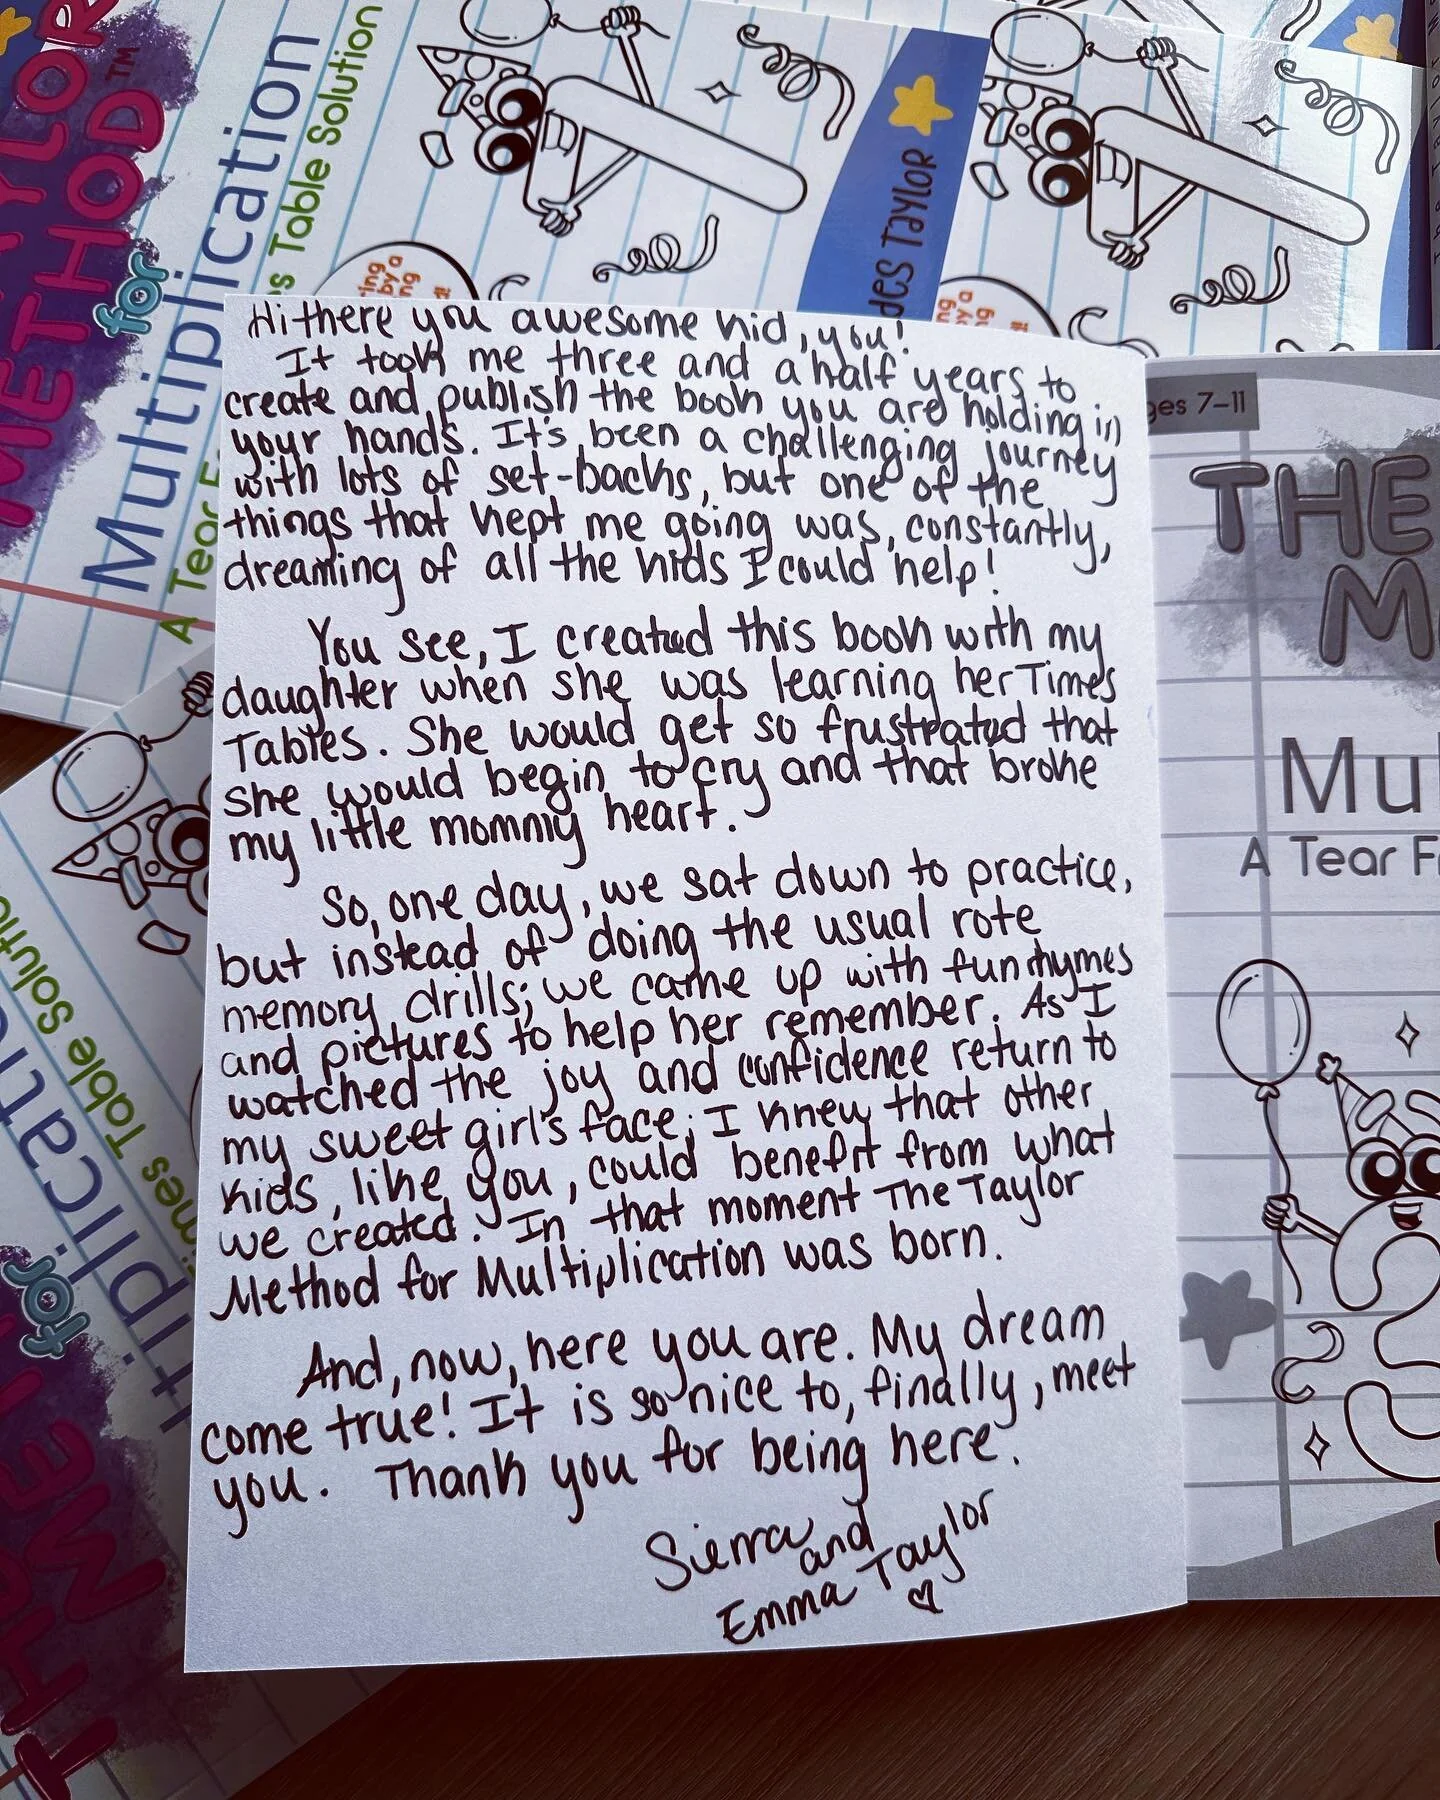 TAYLOR
METHOD™
for
Multiplication
es Table Solution
A Tear F
des Taylor
ring
by a
ng
Hi there you awesome kid, you!
It took me three and a half years to
create and publish the book you are holding in
your hands. It's been a challenging journey
with lots of set-backs, but one of the
things that kept me going was, constantly,
dreaming of all the kids I could help!
You see, I created this book with my
daughter when she was learning her Times
Tables. She would get so frustrated that
she would begin to cry and that broke
my little mommy heart.
So, one day, we sat down to practice,
but instead of doing the usual rote
memory drills; we came up with fun rhymes
and pictures to help her remember. As I
watched the joy and confidence return to
my sweet girl's face; I knew that other
kids, like you, could benefit from what
we created. In that moment The Taylor
Method for Multiplication was born.
And, now, here you are. My dream
come true! It is so nice to, finally, meet
you. Thank you for being here.
Sierra and
Emma Taylor
ges 7-11
THE
M
Mul
A Tear F
imes Table Solutio
tiplicati
for